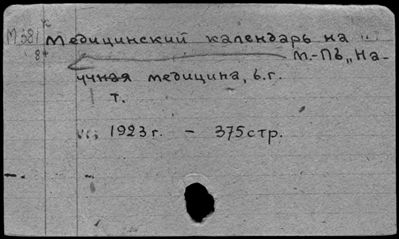 к
М381 Медицинский календарь на
8° М.-Пь „На-
учная медицина, б.г.
т.
1923 г. – 375 стр.